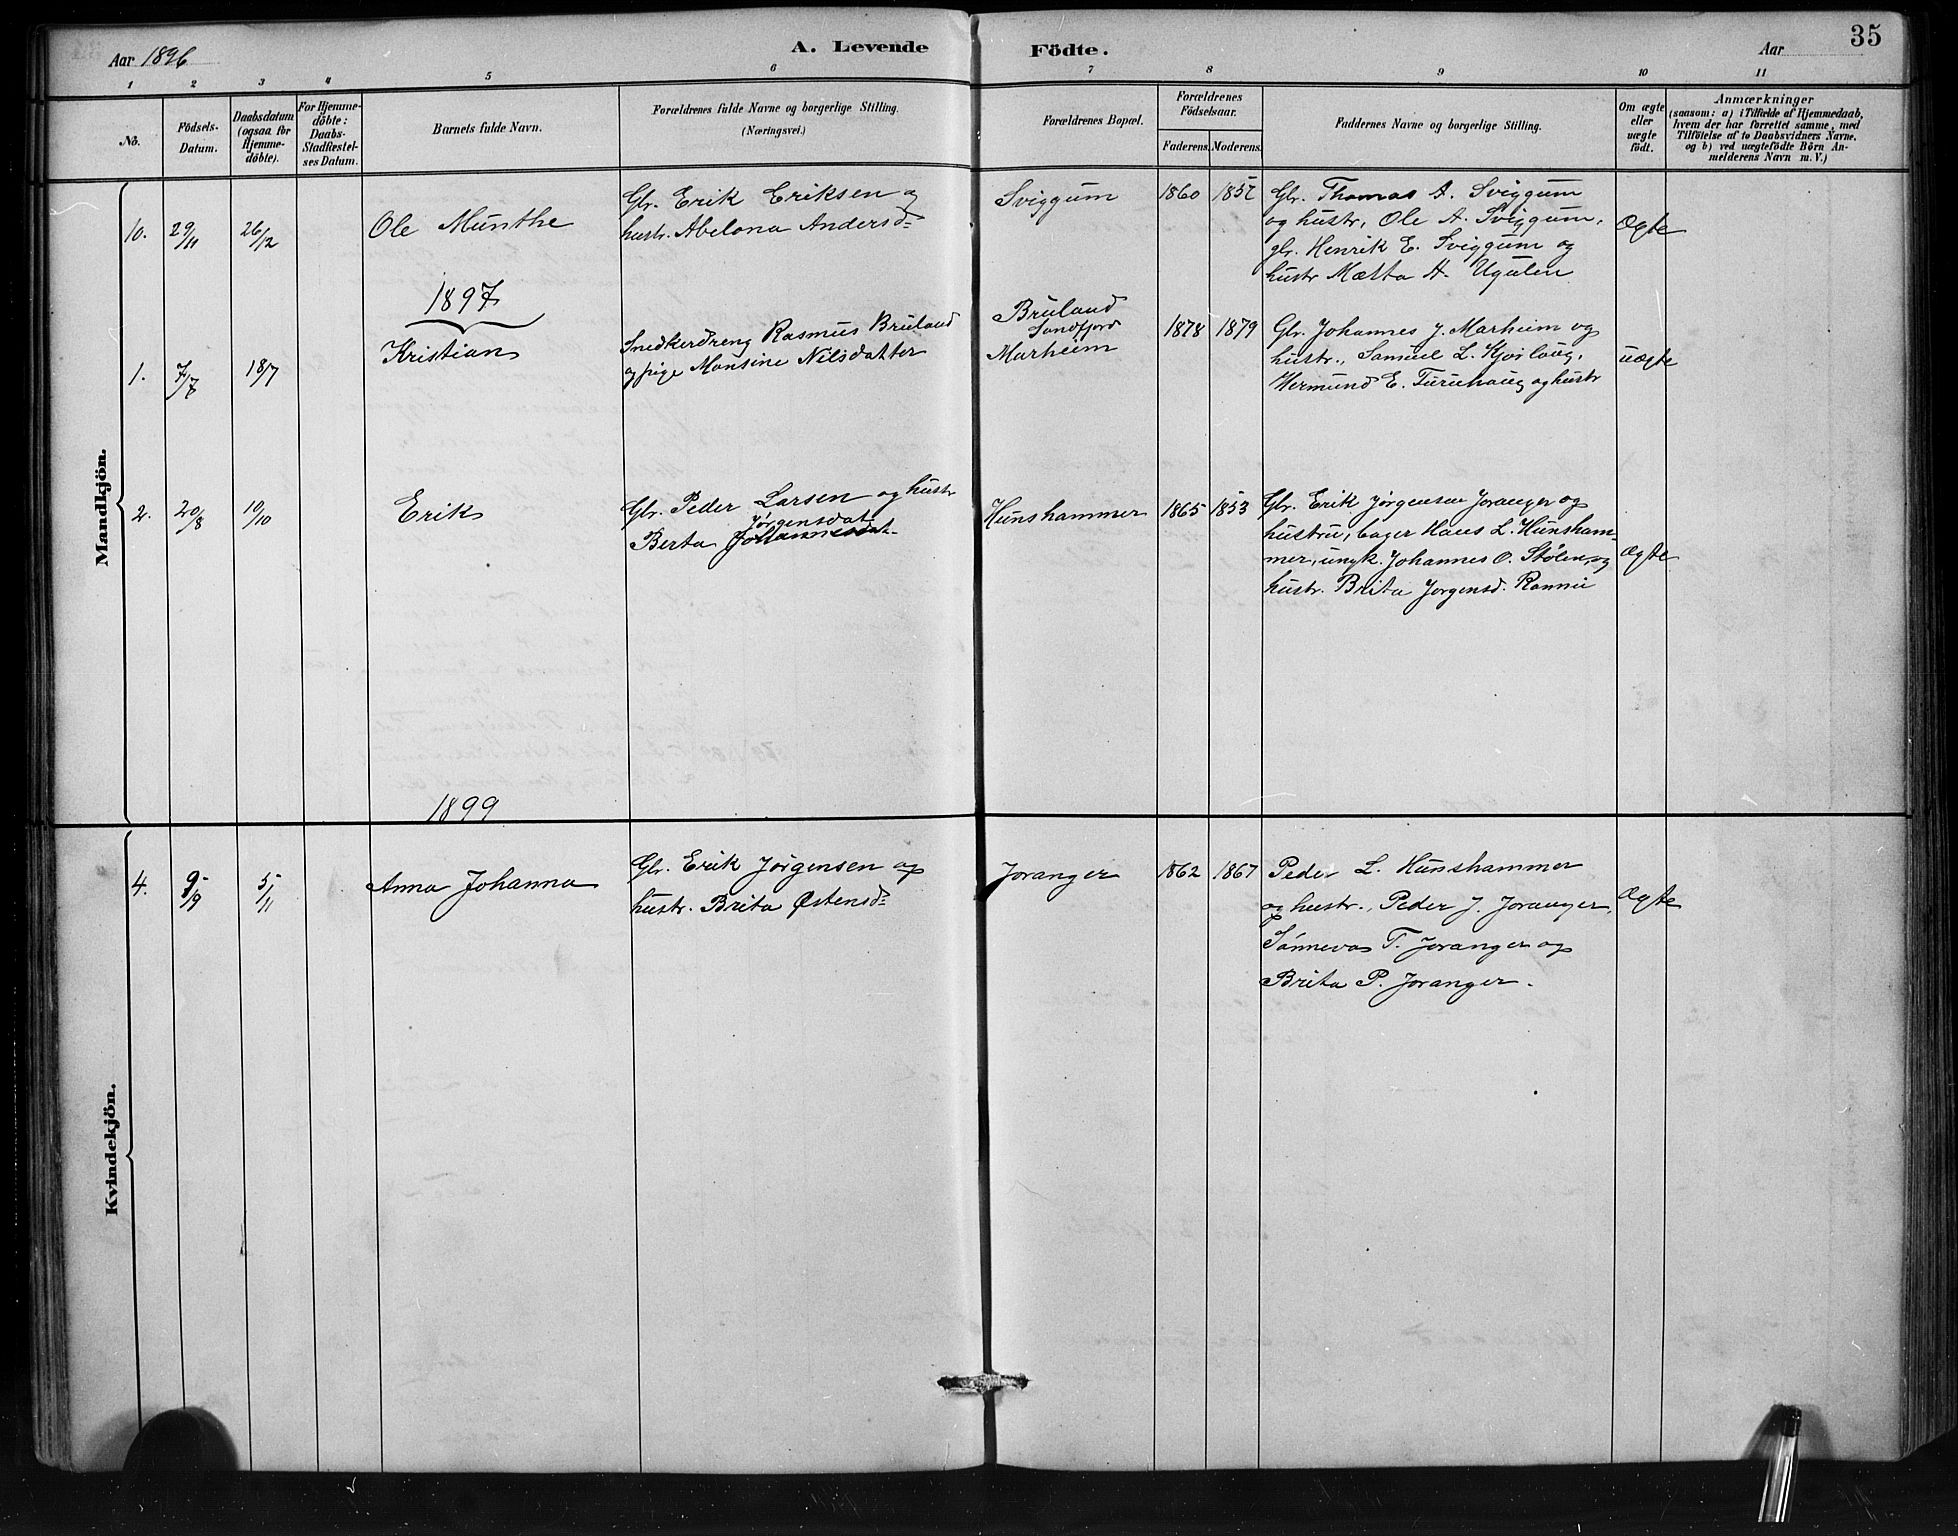 Aar 1896
A. Levende Födte.
Aar
35
1 2 3 4 5 6 7 8 9 10 11
No.
Födsels-
Datum.
Daabsdatum
(ogsaa for
Hjemme-
döbte).
For Hjemme-
döbte:
Daabs-
Stadfæstel-
ses Datum.
Barnets fulde Navn.
Forældrenes fulde Navne og borgerlige Stilling.
(Næringsvei.)
Forældrenes Bopæl.
Forældrenes
Födselsaar.
Faderens. Moderens.
Faddernes Navne og borgerlige Stilling.
Om ægte
eller
uægte
födt.
Anmærkninger
(saasom: a) i Tilfælde af Hjemmedaab,
hvem der har forrettet samme, med
Tilföielse af to Daabsvidners Navne.
og b) ved uægtefödte Börn An-
melderens Navn m. V.)
Mandkjön.
10. 29/11 26/12
Ole Munthe
Gbr. Erik Eriksen og
hustr. Abelona Andersd=
Sviggum
1860 1857
Gbr. Thomas A. Sviggum
og hustr, Ole A. Sviggum,
gbr. Henrik E. Sviggum og
hustr Mætta A. Ugulen
Ægte
1897
1. 7/7 18/7
Kristian
Snedkerdreng Rasmus Bruland
og pige Monsine Nilsdatter
Bruland
Sondfjord
Marheim
1878 1879
Gbr. Johannes J. Marheim og
hustr., Samuel L. Kjørlaug,
Hermund E. Turuhaug og hustr
uægte
2. 20/8 10/10
Erik
Gbr. Peder Larsen og hustr
Jørgensdat
Berta Johannesdat.
Hunshammer
1865 1853
Gbr. Erik Jørgensen Joranger og
hustru, bager Hans L. Hunsham-
mer, ungk. Johannes O. Stølen, og
hustr. Brita Jørgensd. Rønnei
Ægte
1899
Kvindekjön.
4. 9/9 5/11
Anna Johanna
Gbr. Erik Jørgensen og
hustr. Brita Østensd=
Joranger
1862 1867
Peder L. Hunshammer
og hustr., Peder J. Joranger,
Sønneva T. Joranger og
Brita P. Joranger.
Ægte